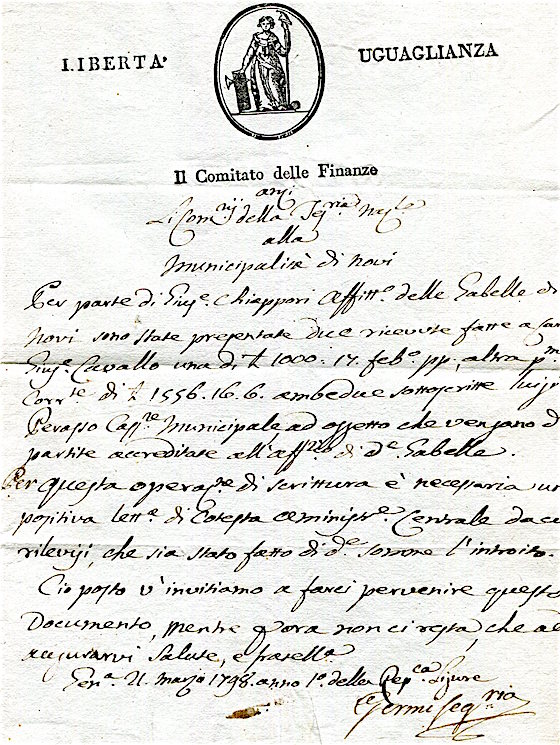 LIBERTA' UGUAGLIANZA
Il Comitato delle Finanze
alla
Municipalità di Novi
Per parte di Giuse. Chiappori Affitto. delle Gabelle di
Novi sono state presentate due ricevute fatte a
Giuse. Cavallo una di £ 1000: 17. febo. pp., altra pmo
Corrte di £ 1556.16.6. ambedue sottoscritte Luigi
Perasso Casre Municipale, ad oggetto che vengano
partite accreditate all' di de. Gabelle.
Per questa di scrittura è necessaria un
positiva lette. di Cotesta Centrale da cu
rilevisi, che sia stato fatto di de. somme l'introito.
Ciò posto v'invitiamo a farci pervenire questo
Documento, mentre p ora non ci resta, che
augurarvi Salute, e fratella.
Gena. 21. marzo 1798. anno 1o. della Repca. Ligure
Germi Segria